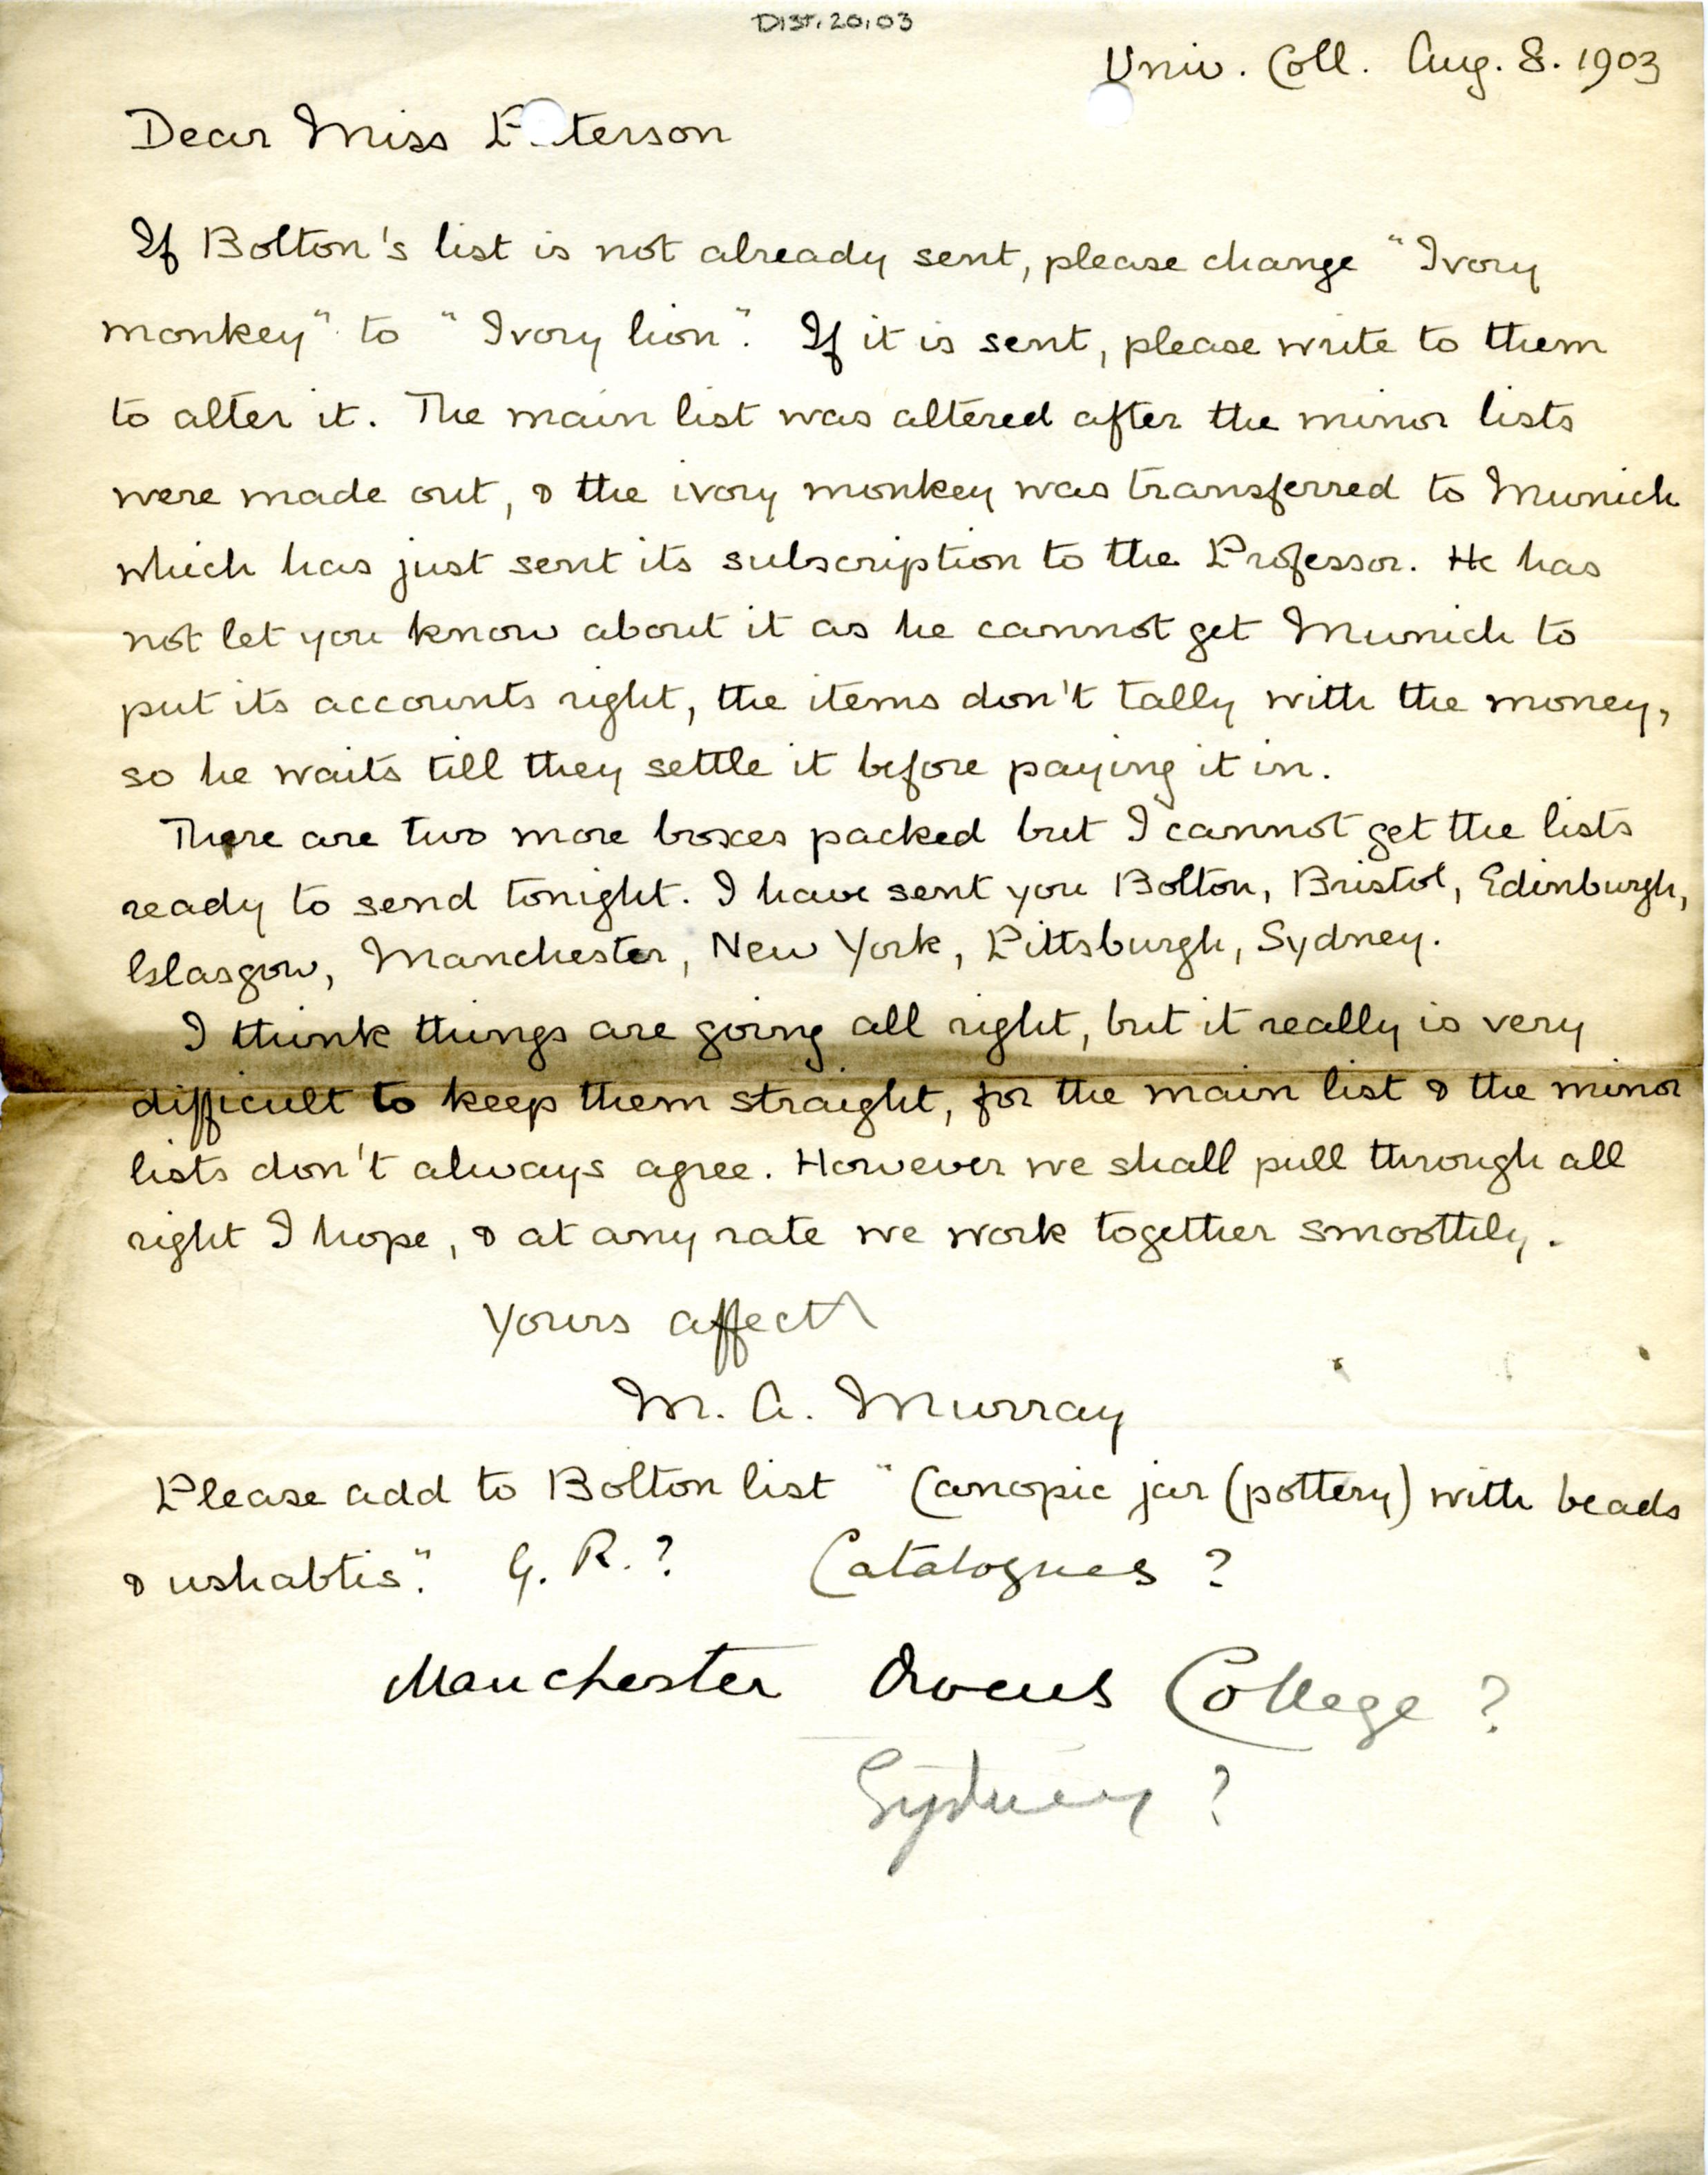 DIST.20.03
Univ. Coll. Aug. 8. 1903
Dear Miss P terson
If Bolton's list is not already sent, please change "Ivory
monkey" to "Ivory lion". If it is sent, please write to them
to alter it. The main list was altered after the minor lists
were made out, & the ivory monkey was transferred to Munich
which has just sent its subscription to the Professor. He has
not let you know about it as he cannot get Munich to
put its accounts right, the items don't tally with the money,
so he waits till they settle it before paying it in.
There are two more boxes packed but I cannot get the lists
ready to send tonight. I have sent you Bolton, Bristol, Edinburgh,
Glasgow, Manchester, New York, Pittsburgh, Sydney.
I think things are going all right, but it really is very
difficult to keep them straight, for the main list & the minor
lists don't always agree. However we shall pull through all
right I hope, & at any rate we work together smoothly.
Yours affect
M. A. Murray
Please add to Bolton list "Canopic jar (pottery) with beads
& ushabtis". G. R.? Catalogues?
Manchester Owens College?
Sydney?